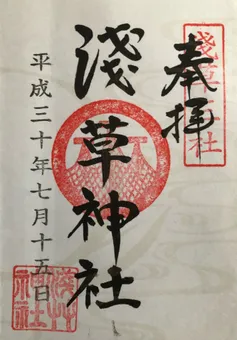 奉拝
淺草神社
平成三十年七月十五日
淺草神社